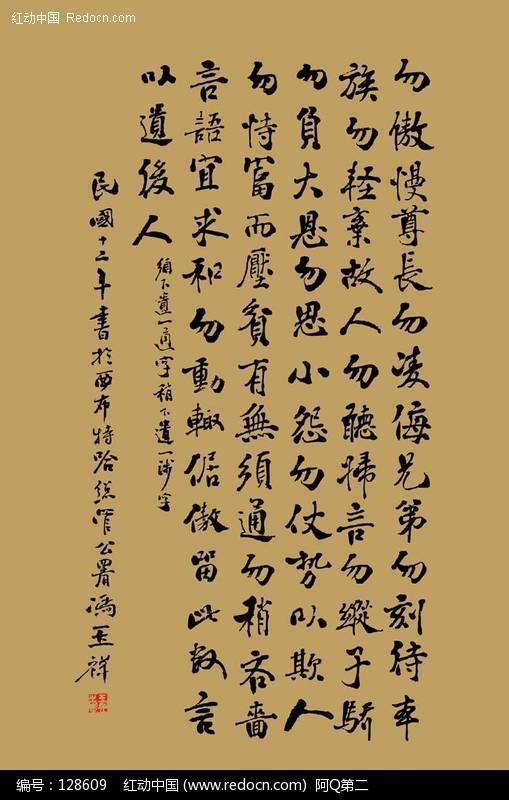 红动中国 Redocn.com
勿傲慢尊長勿凌侮兄弟勿刻待本
族勿輕棄故人勿聽婦言勿縱子驕
勿負大恩勿思小怨勿仗勢以欺人
勿恃富而壓貧有無須通勿稍吝嗇
言語宜求和勿動輒倨傲留此数言
以遺後人
須下遺一通字稍下遺一涉字
民國十二年書於西布特哈總管公署馮玉祥
编号：128609 红动中国 (www.redocn.com) 阿Q第二